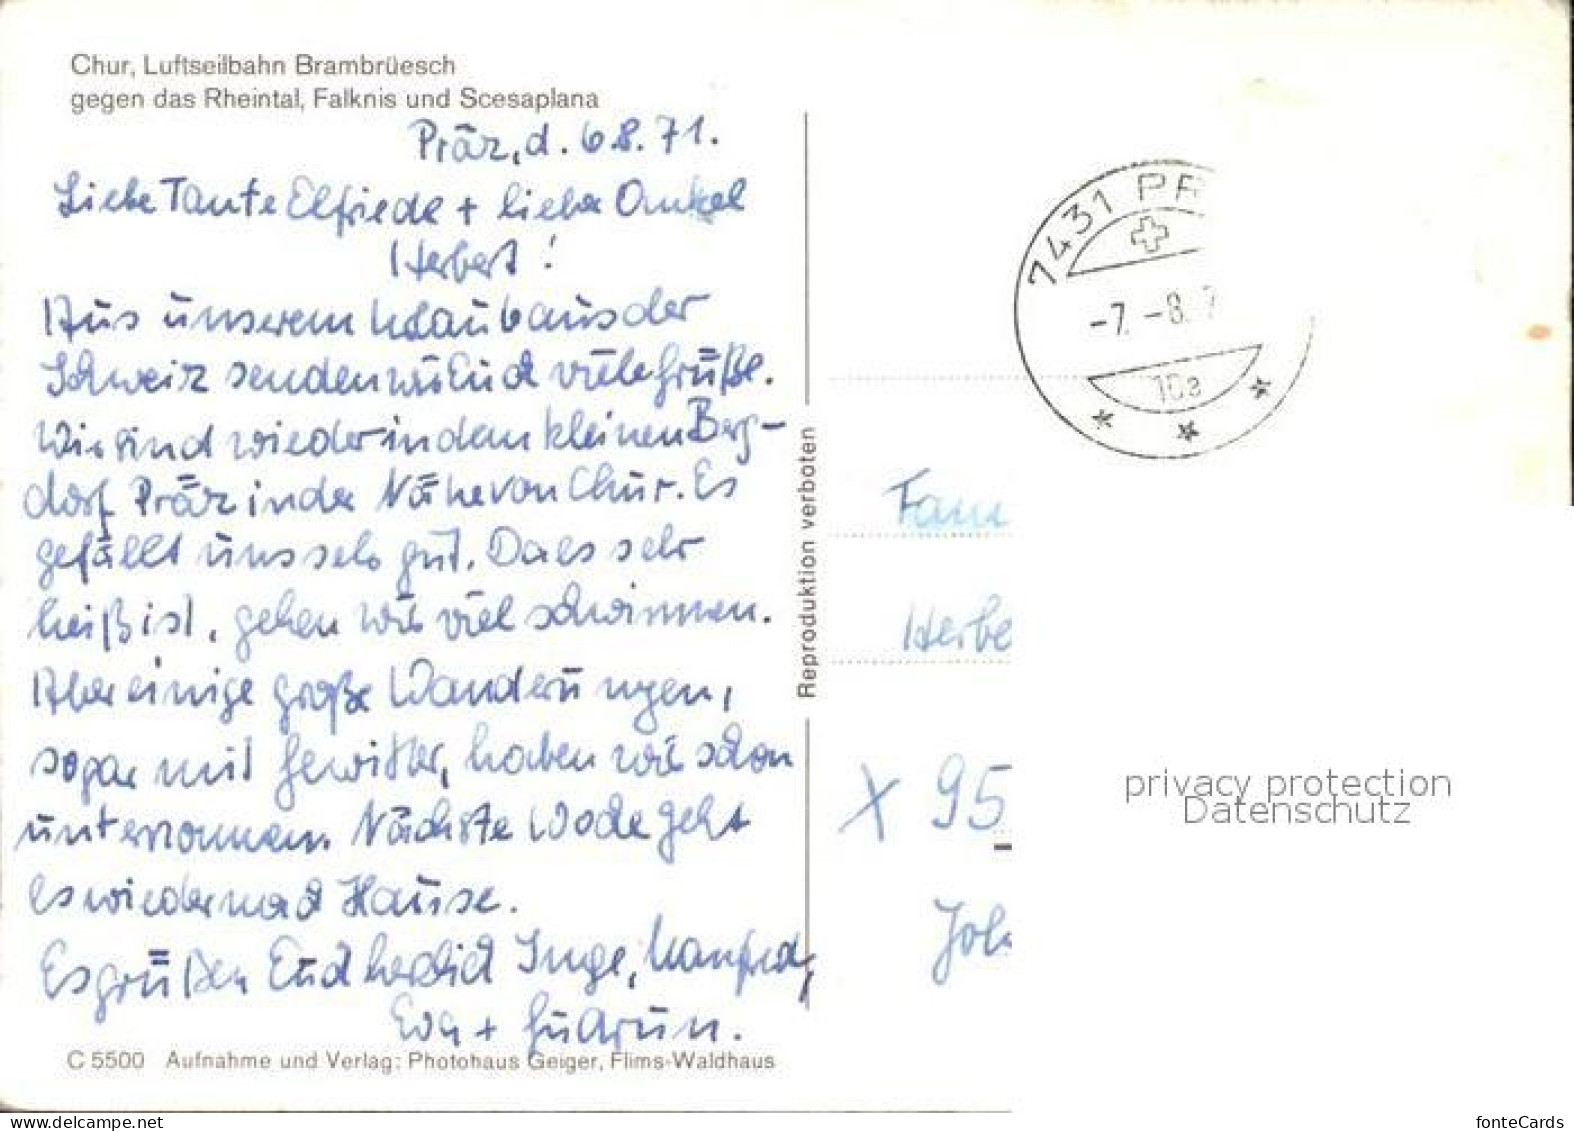 Chur, Luftseilbahn Brambrüesch
gegen das Rheintal, Falknis und Scesaplana
Präz, d. 6.8.71.
Liebe Tante Elfriede + lieber Onkel
Herbert!
Aus unserem Urlaub aus der
Schweiz senden wir Euch viele Grüße.
Wir sind wieder in dem kleinen Berg-
dorf Präz in der Nähe von Chur. Es
gefällt uns sehr gut. Da es sehr
heiß ist, gehen wir viel schwimmen.
Aber einige große Wanderungen,
sogar mit Gewitter, haben wir schon
unternommen. Nächste Woche geht
es wieder nach Hause.
Es grüßen Euch herzlich Inge, Manfred,
Eva + Gudrun.
C 5500 Aufnahme und Verlag: Photohaus Geiger, Flims-Waldhaus
Reproduktion verboten
7431 PR
-7.-8.7
10a
Fam
Herbe
X 95
Joh
privacy protection
Datenschutz
www.delcampe.net
fonteCards